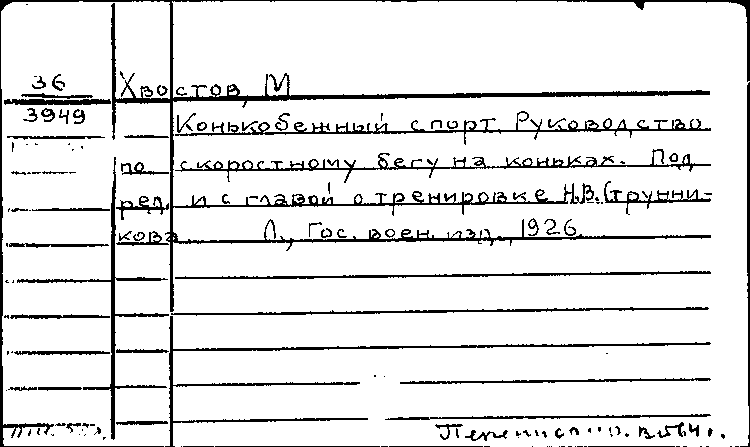 36
3949
Хвостов, М
Конькобежный спорт. Руководство
по скоростному бегу на коньках. Под
ред. и с главой о тренировке Н.В. Струнни-
кова Л., Гос. воен. изд., 1926.